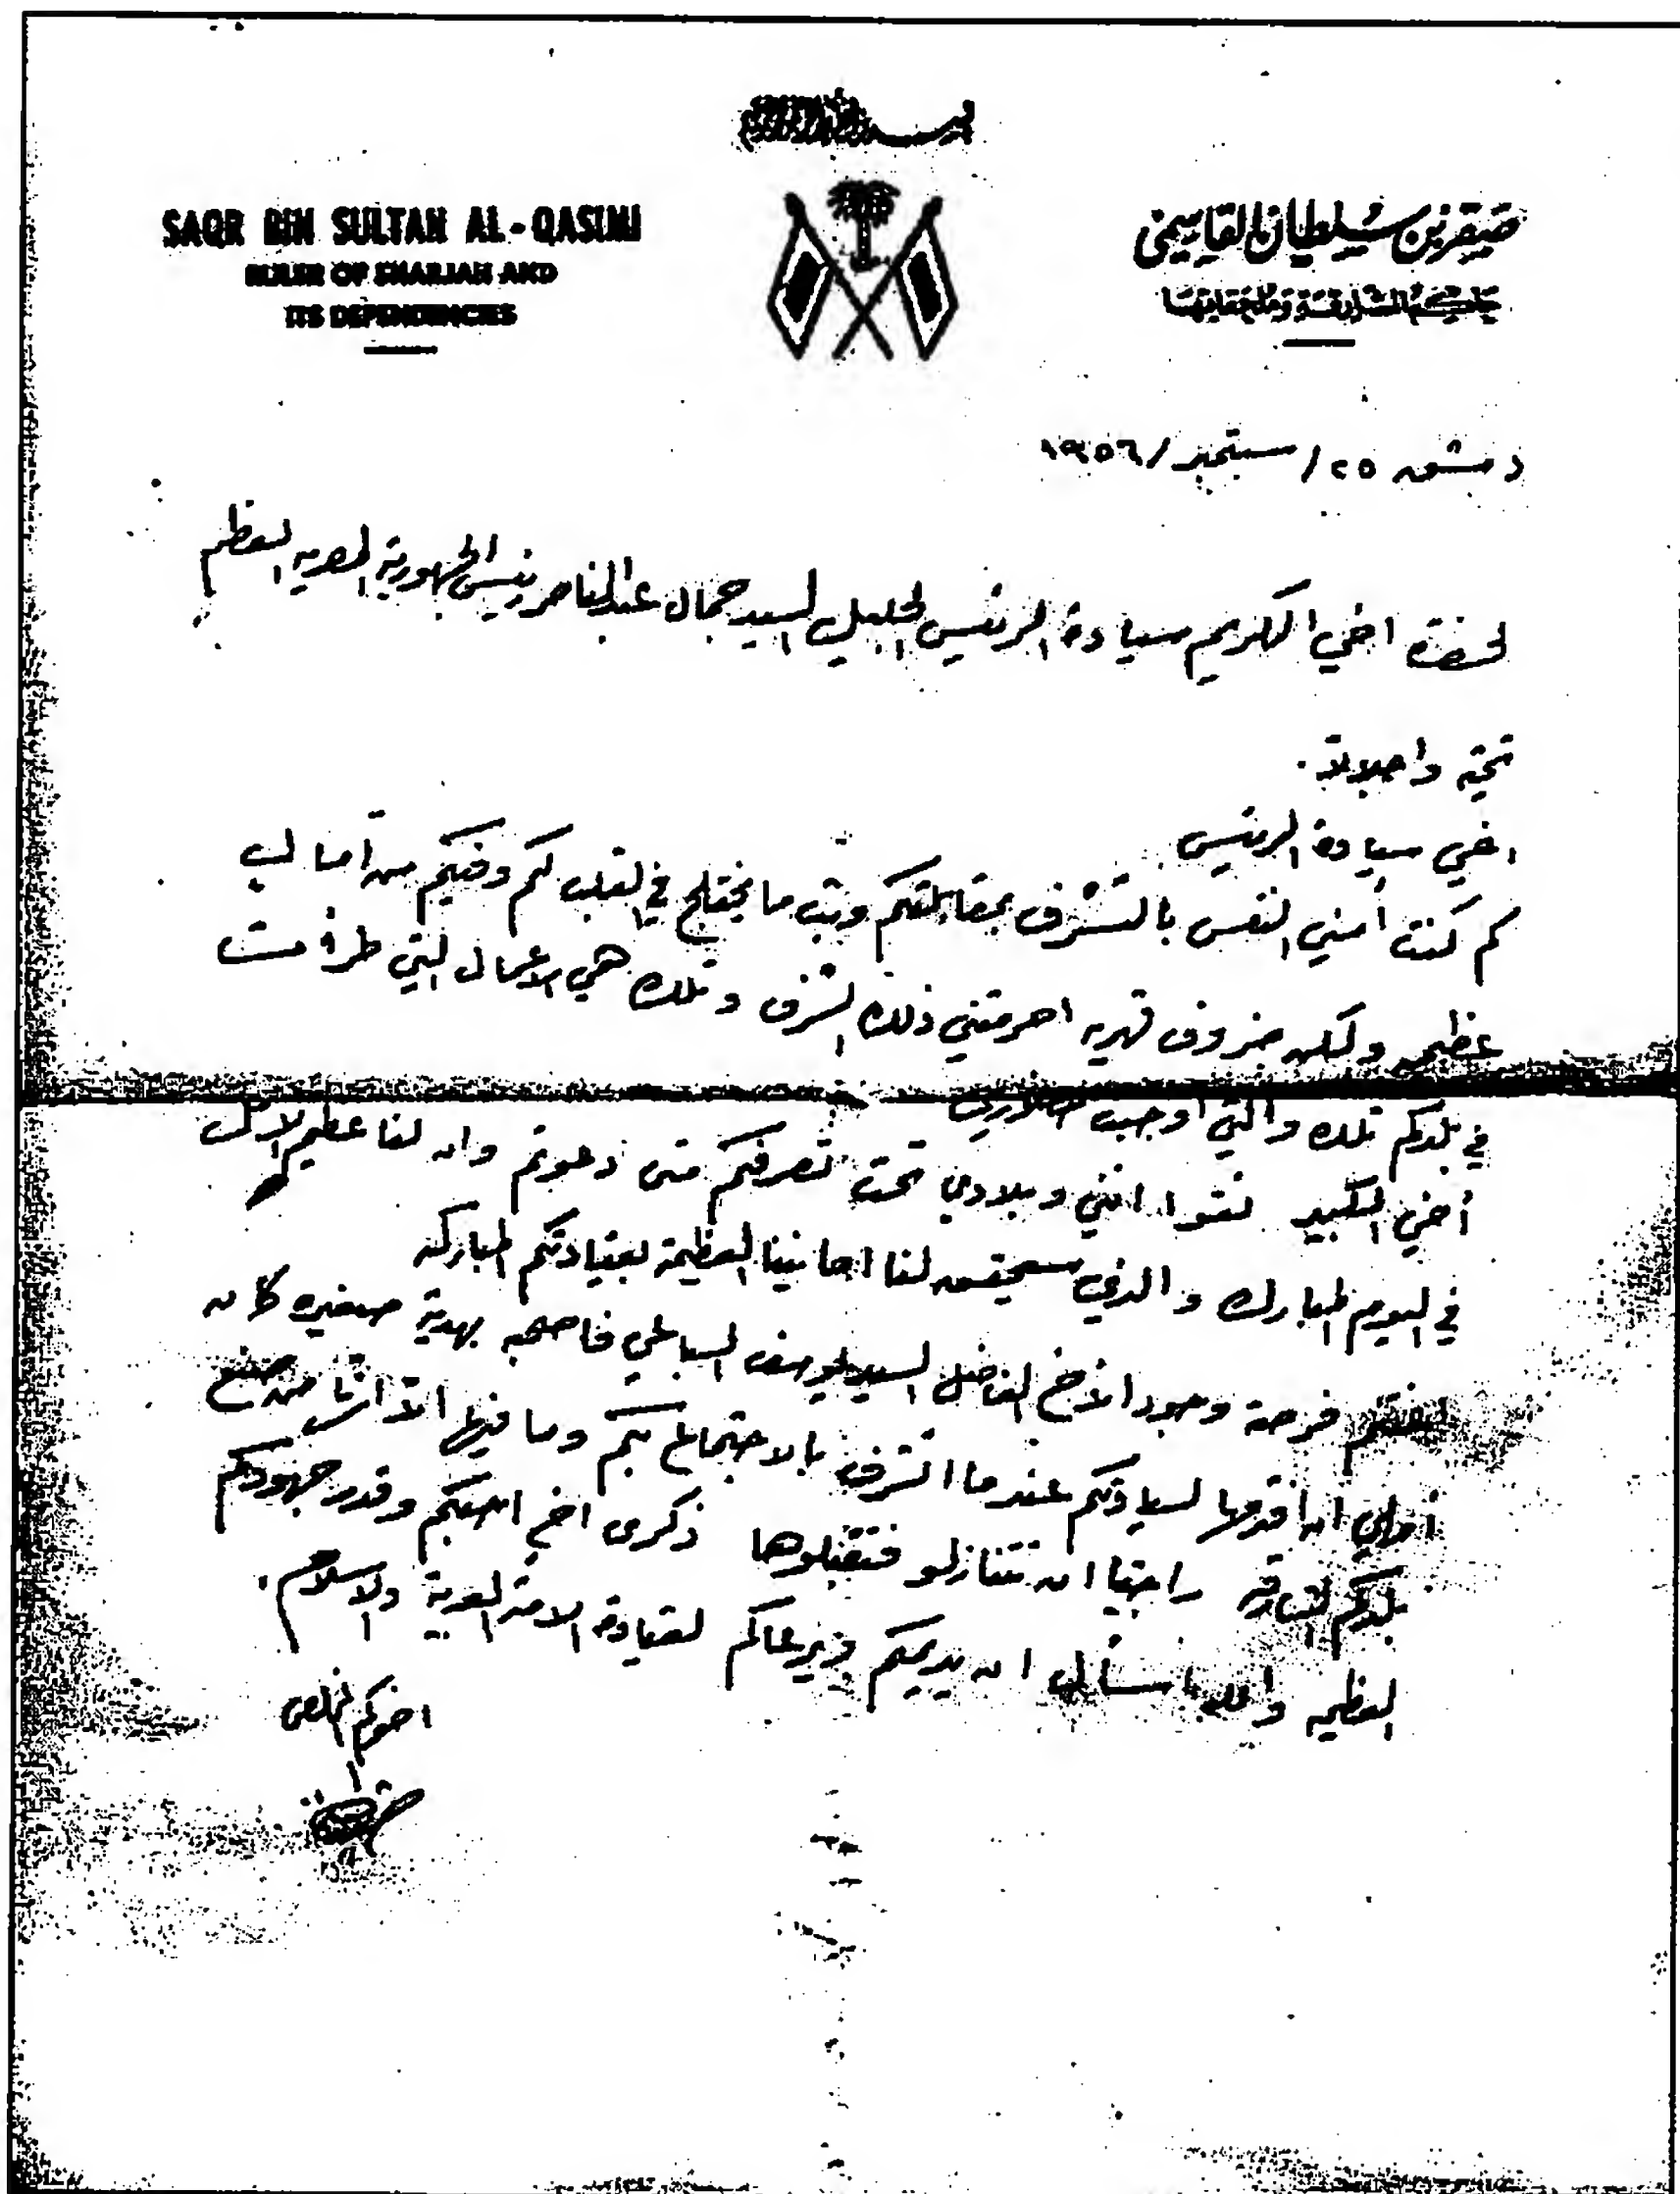 SAQR BIN SULTAN AL-QASIMI
RULER OF SHARJAH AND
ITS DEPENDENCIES
صقر بن سلطان القاسمي
حاكم الشارقة وملحقاتها
دمشق ٢٥/سبتمبر/١٩٥٦
لحضرة اخي الكريم سيادة الرئيس الجليل السيد جمال عبدالناصر رئيس الجمهورية المصريه المعظم
تحية واجلالا.
اخي سيادة الرئيس
كم كنت أمني النفس بالتشرف بمقابلتكم وبث ما يختلج في القلب لكم وفيكم من آمال
عظيمه ولكن ضروف قهريه احرمتني ذلك الشرف وتلك هي الاعمال التي طرأت
في بلدكم تلك والتي اوجبت
أخي الكبير ثقوا انني وبلادي تحت تصرفكم متى دعوتم وان لنا عظيم الامل
في اليوم المبارك والذي سيحقق لنا امانينا العظيمة بقيادتكم المباركه
فرصة وجود الأخ الفاضل السيد يوسف السباعي فاصحبه بهدية صغيره كان
املي ان اقدمها لسيادتكم عندما اتشرف بالاجتماع بكم وما فيها الا انها من صنع
بلدكم الشارقه راجيا ان تتنازلو فتقبلوها ذكرى اخ احبكم وقدر جهودكم
العظيمه والله اسأل ان يديمكم ويرعاكم لقيادة الامة العربية والاسلام.
اخوكم المخلص